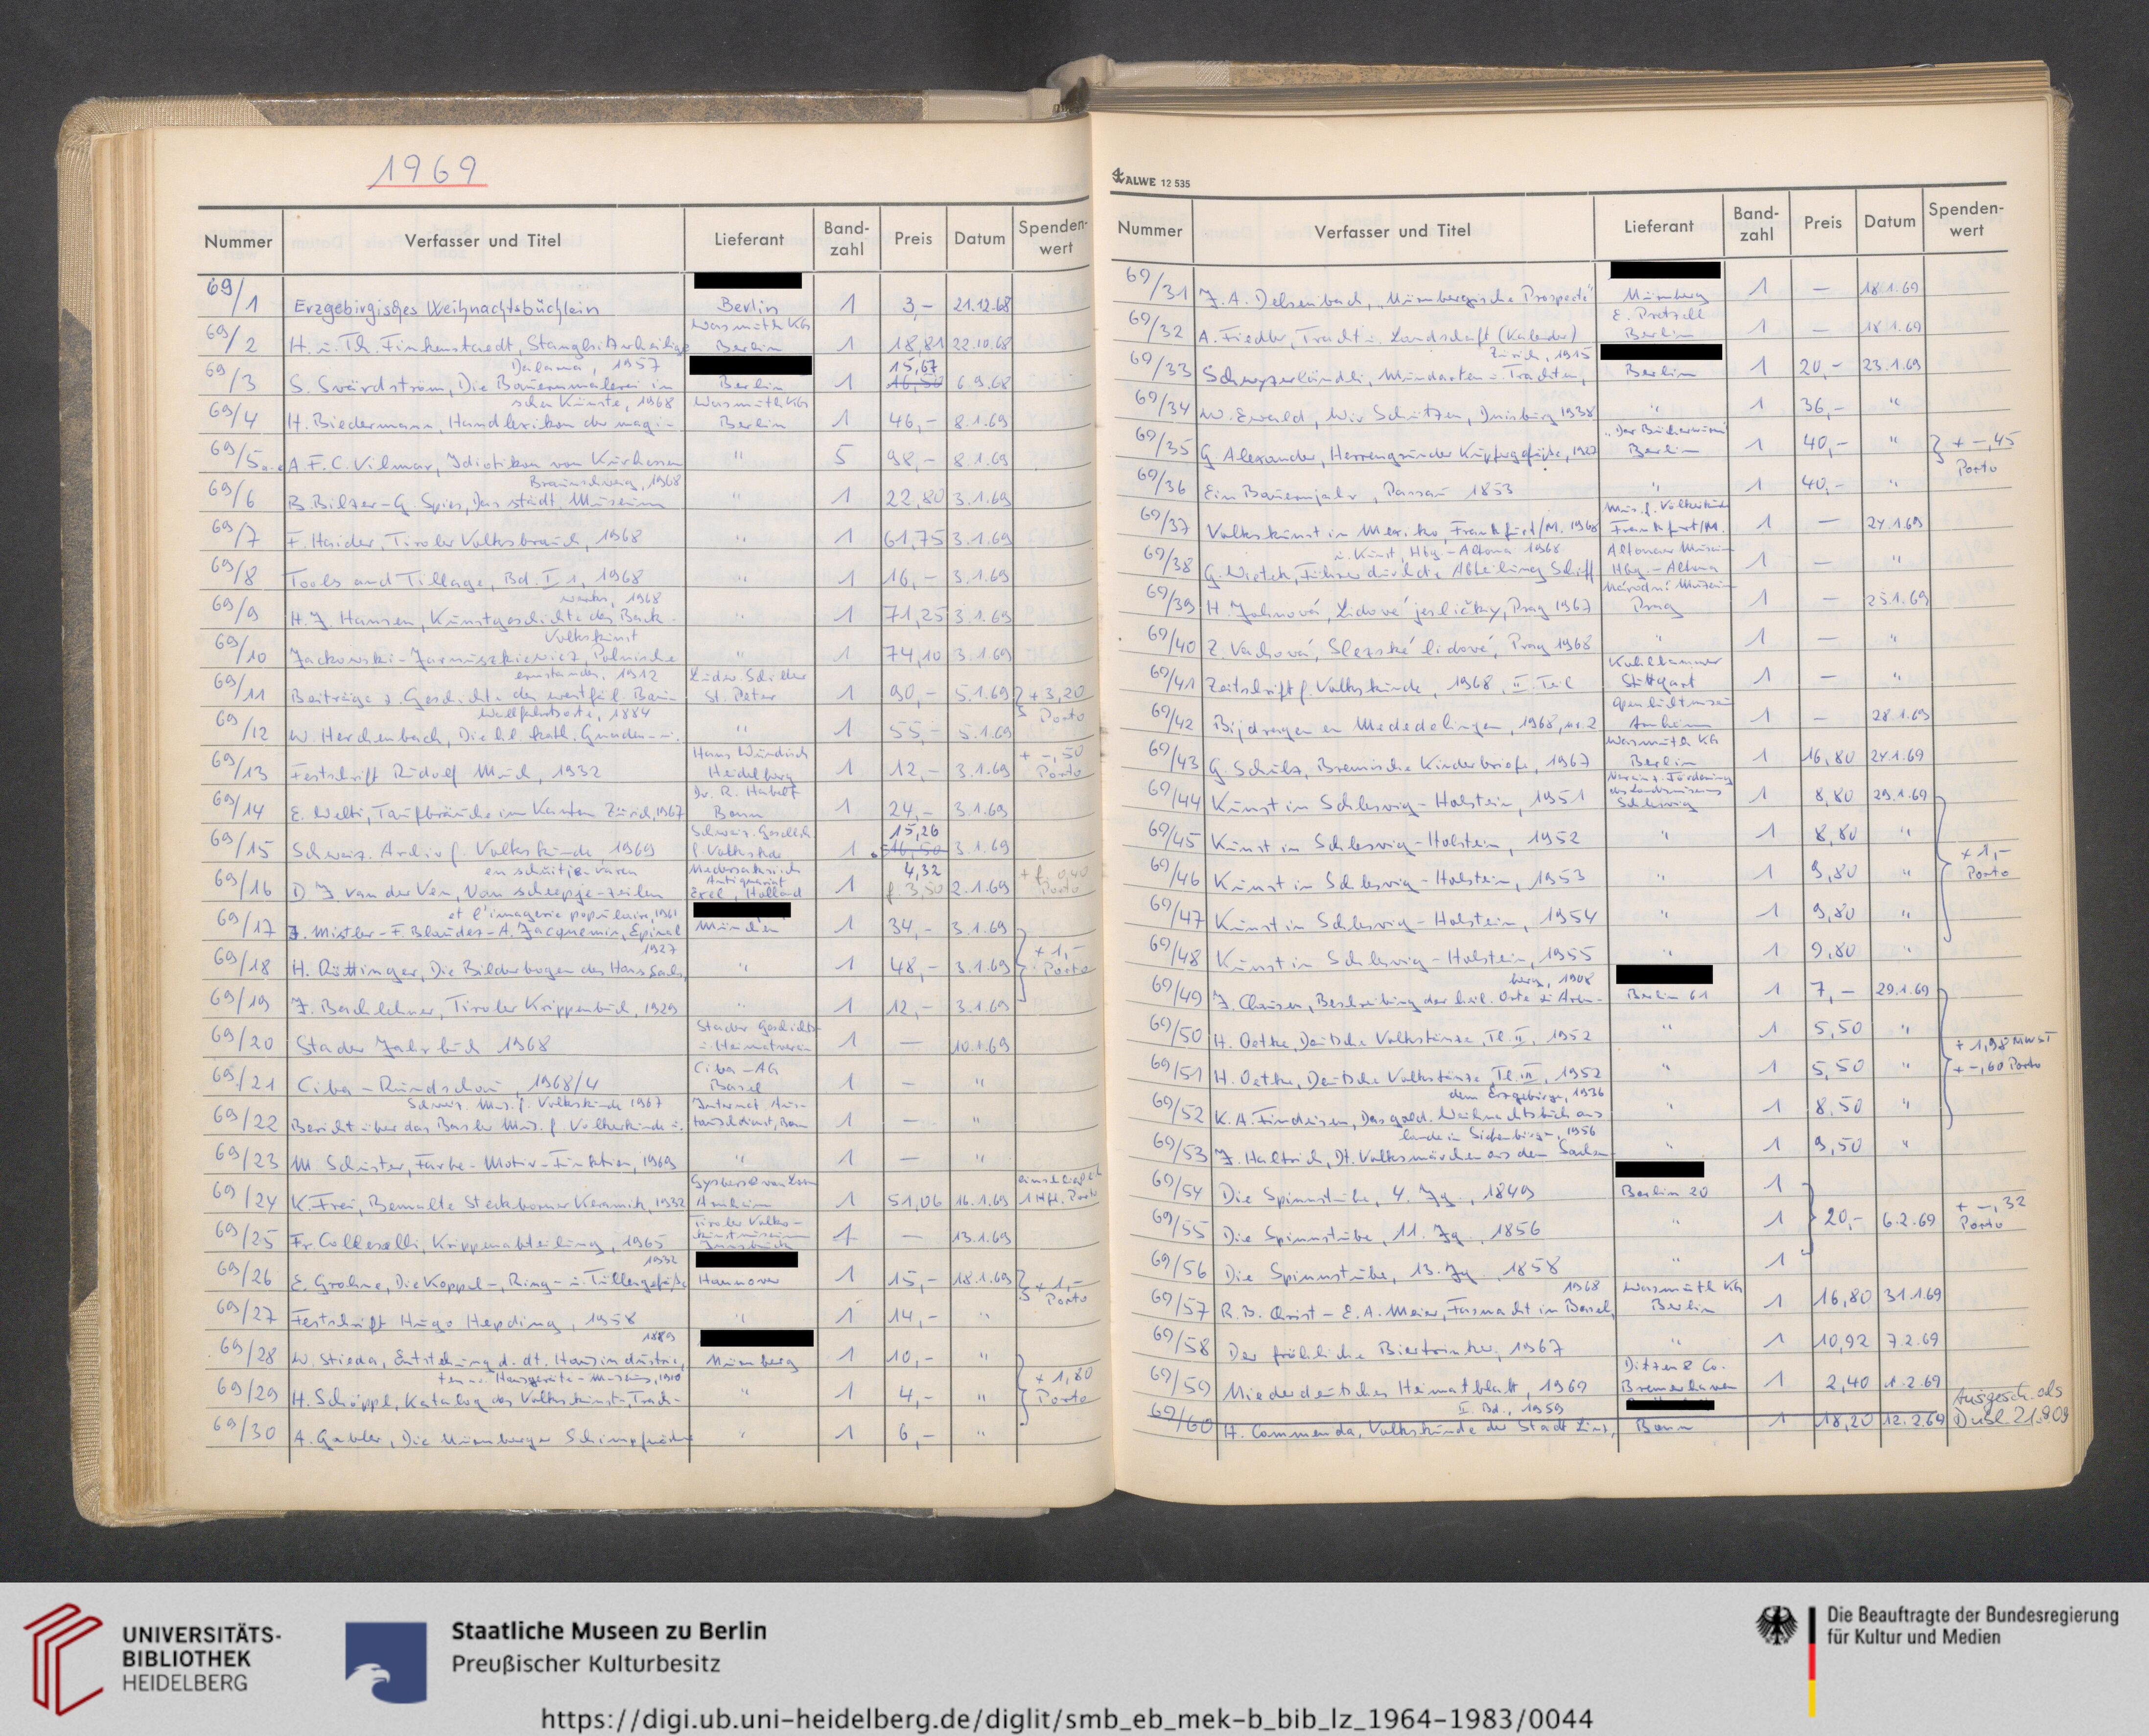 1969
Nummer Verfasser und Titel Lieferant Band-zahl Preis Datum Spenden-wert
69/1 Erzgebirgisches Weihnachtsbüchlein Berlin 1 3,- 21.12.68
69/2 H. u. Th. Finkenstaedt, Stanglsitzerheilige Wasmuth KG Berlin 1 18,81 22.10.68
69/3 S. Svärdström, Die Bauernmalerei in Dalarna, 1957 Berlin 1 15,67 16,50 6.9.68
69/4 H. Biedermann, Handlexikon der magischen Künste, 1968 Wasmuth KG Berlin 1 46,- 8.1.69
69/5 A.F.C. Vilmar, Idiotikon von Kurhessen " 5 98,- 8.1.69
69/6 B. Bilzer-G. Spies, Das städt. Museum Braunschweig, 1968 " 1 22,80 3.1.69
69/7 F. Haider, Tiroler Volksbrauch, 1968 " 1 61,75 3.1.69
69/8 Tools and Tillage, Bd. I 1, 1968 " 1 16,- 3.1.69
69/9 H.J. Hansen, Kunstgeschichte des Backwerks, 1968 " 1 71,25 3.1.69
69/10 Jackowski-Jarnuszkiewicz, Polnische Volkskunst " 1 74,10 3.1.69
69/11 Beiträge z. Geschichte des westfäl. Bauernstandes, 1912 St. Peter 1 90,- 5.1.69 + 3,20 Porto
69/12 W. Herchenbach, Die hl. kath. Gnaden- u. Wallfahrtsorte, 1884 " 1 55,- 5.1.69
69/13 Festschrift Rudolf Much, 1932 Hans Heidelberg 1 12,- 3.1.69 + -,50 Porto
69/14 E. Welti, Taufbräuche im Kanton Zürich, 1967 Dr. R. Habelt Bonn 1 24,- 3.1.69
69/15 Schweiz. Archiv f. Volkskunde 1969 Schweiz. Gesellsch. f. Volkskde 1 15,26 16,50 3.1.69
69/16 D.J. van der Ven, Van scheepje-zeilen en schuitje-varen Antiquariat Exel, Holland 1 4,32 f. 3,50 2.1.69 + f. 0,40 Porto
69/17 J. Mistler-F. Blaudez-A. Jacquemin, Epinal et l'imagerie populaire, 1961 München 1 34,- 3.1.69
69/18 H. Röttinger, Die Bilderbogen des Hans Sachs, 1927 " 1 48,- 3.1.69 + 1,- Porto
69/19 J. Bachlechner, Tiroler Krippenbuch, 1929 " 1 12,- 3.1.69
69/20 Stader Jahrbuch 1968 Stader Geschichts- u. Heimatverein 1 — 10.1.69
69/21 Ciba-Rundschau, 1968/4 Ciba-AG Basel 1 — "
69/22 Bericht über das Basler Mus. f. Völkerkunde u. Schweiz. Mus. f. Volkskunde 1967 Internat. Austauschdienst, Bonn 1 — "
69/23 M. Schuster, Farbe-Motiv-Funktion, 1969 " 1 — "
69/24 K. Frei, Bemalte Steckborner Keramik, 1932 Gysbers & van Loon Arnheim 1 51,06 16.1.69 einschließlich 1 Hfl. Porto
69/25 Fr. Colleselli, Krippenabteilung, 1965 Tiroler Volkskunstmuseum Innsbruck 1 — 13.1.69
69/26 E. Grohne, Die Koppel-, Ring- u. Tüllengefäße 1932 Hannover 1 15,- 18.1.69 + 1,- Porto
69/27 Festschrift Hugo Hepding, 1958 " 1 14,- "
69/28 W. Stieda, Entstehung d. dt. Hausindustrie, 1889 Nürnberg 1 10,- "
69/29 H. Schöppl, Katalog des Volkskunst-, Trachten- u. Hausgeräte-Museums, 1910 " 1 4,- " + 1,80 Porto
69/30 A. Gabler, Die Nürnberger Schimpfwörter " 1 6,- "
ALWE 12 535
Nummer Verfasser und Titel Lieferant Band-zahl Preis Datum Spenden-wert
69/31 J.A. Delsenbach, „Nürnbergische Prospecte" Nürnberg 1 — 18.1.69
69/32 A. Fiedler, Tracht u. Landschaft (Kalender) E. Pretzell Berlin 1 — 18.1.69
69/33 Schwyzerländli, Mundarten u. Trachten, Zürich, 1915 Berlin 1 20,- 23.1.69
69/34 W. Ewald, Wir Schützen, Duisburg 1938 " 1 36,- "
69/35 G. Alexander, Herrengrunder Kupfergefäße, 1927 „Der Bücherwurm" Berlin 1 40,- " + -,45 Porto
69/36 Ein Bauernjahr, Passau 1853 " 1 40,- "
69/37 Volkskunst in Mexiko, Frankfurt/M. 1968 Mus. f. Völkerkunde Frankfurt/M. 1 — 24.1.69
69/38 G. Wietek, Führer durch d. Abteilung Schiff u. Kunst, Hbg.-Altona 1968 Altonaer Museum Hbg.-Altona 1 — "
69/39 H. Johnová, Lidové jesličky, Prag 1967 Národní Muzeum Prag 1 — 25.1.69
69/40 Z. Vachová, Slezské lidové, Prag 1968 " 1 — "
69/41 Zeitschrift f. Volkskunde, 1968, II. Teil Kohlhammer Stuttgart 1 — "
69/42 Bijdragen en Mededelingen, 1968, nr. 2 Openluchtmuseum Arnheim 1 — 28.1.69
69/43 G. Schulz, Bremische Kinderbriefe, 1967 Wasmuth KG Berlin 1 16,80 24.1.69
69/44 Kunst in Schleswig-Holstein, 1951 Verein z. Förderung des Landesmuseums Schleswig 1 8,80 29.1.69
69/45 Kunst in Schleswig-Holstein, 1952 " 1 8,80 "
69/46 Kunst in Schleswig-Holstein, 1953 " 1 9,80 " + 1,- Porto
69/47 Kunst in Schleswig-Holstein, 1954 " 1 9,80 "
69/48 Kunst in Schleswig-Holstein, 1955 " 1 9,80 "
69/49 J. Clausen, Beschreibung der heil. Orte zu Arenberg, 1908 Berlin 61 1 7,- 29.1.69
69/50 H. Oetke, Deutsche Volkstänze, Tl. II, 1952 " 1 5,50 "
69/51 H. Oetke, Deutsche Volkstänze, Tl. III, 1952 " 1 5,50 " + 1,98 MWST + -,60 Porto
69/52 K.A. Findeisen, Das gold. Weihnachtsbuch aus dem Erzgebirge, 1936 " 1 8,50 "
69/53 J. Haltrich, Dt. Volksmärchen aus dem Sachsenlande in Siebenbürgen, 1956 " 1 9,50 "
69/54 Die Spinnstube, 4. Jg., 1849 Berlin 20 1
69/55 Die Spinnstube, 11. Jg., 1856 " 1 20,- 6.2.69 + -,32 Porto
69/56 Die Spinnstube, 13. Jg., 1858 " 1
69/57 R.B. Christ-E.A. Meier, Fasnacht in Basel, 1968 Wasmuth KG Berlin 1 16,80 31.1.69
69/58 Der fröhliche Biertrinker, 1967 " 1 10,92 7.2.69
69/59 Niederdeutsches Heimatblatt, 1969 Ditzen & Co. Bremerhaven 1 2,40 1.2.69
69/60 H. Commenda, Volkskunde der Stadt Linz, II. Bd., 1959 Bonn 1 18,20 12.2.69 Ausgesch. als Dubl. 21.9.09
UNIVERSITÄTS-
BIBLIOTHEK
HEIDELBERG
Staatliche Museen zu Berlin
Preußischer Kulturbesitz
Die Beauftragte der Bundesregierung
für Kultur und Medien
https://digi.ub.uni-heidelberg.de/diglit/smb_eb_mek-b_bib_lz_1964-1983/0044